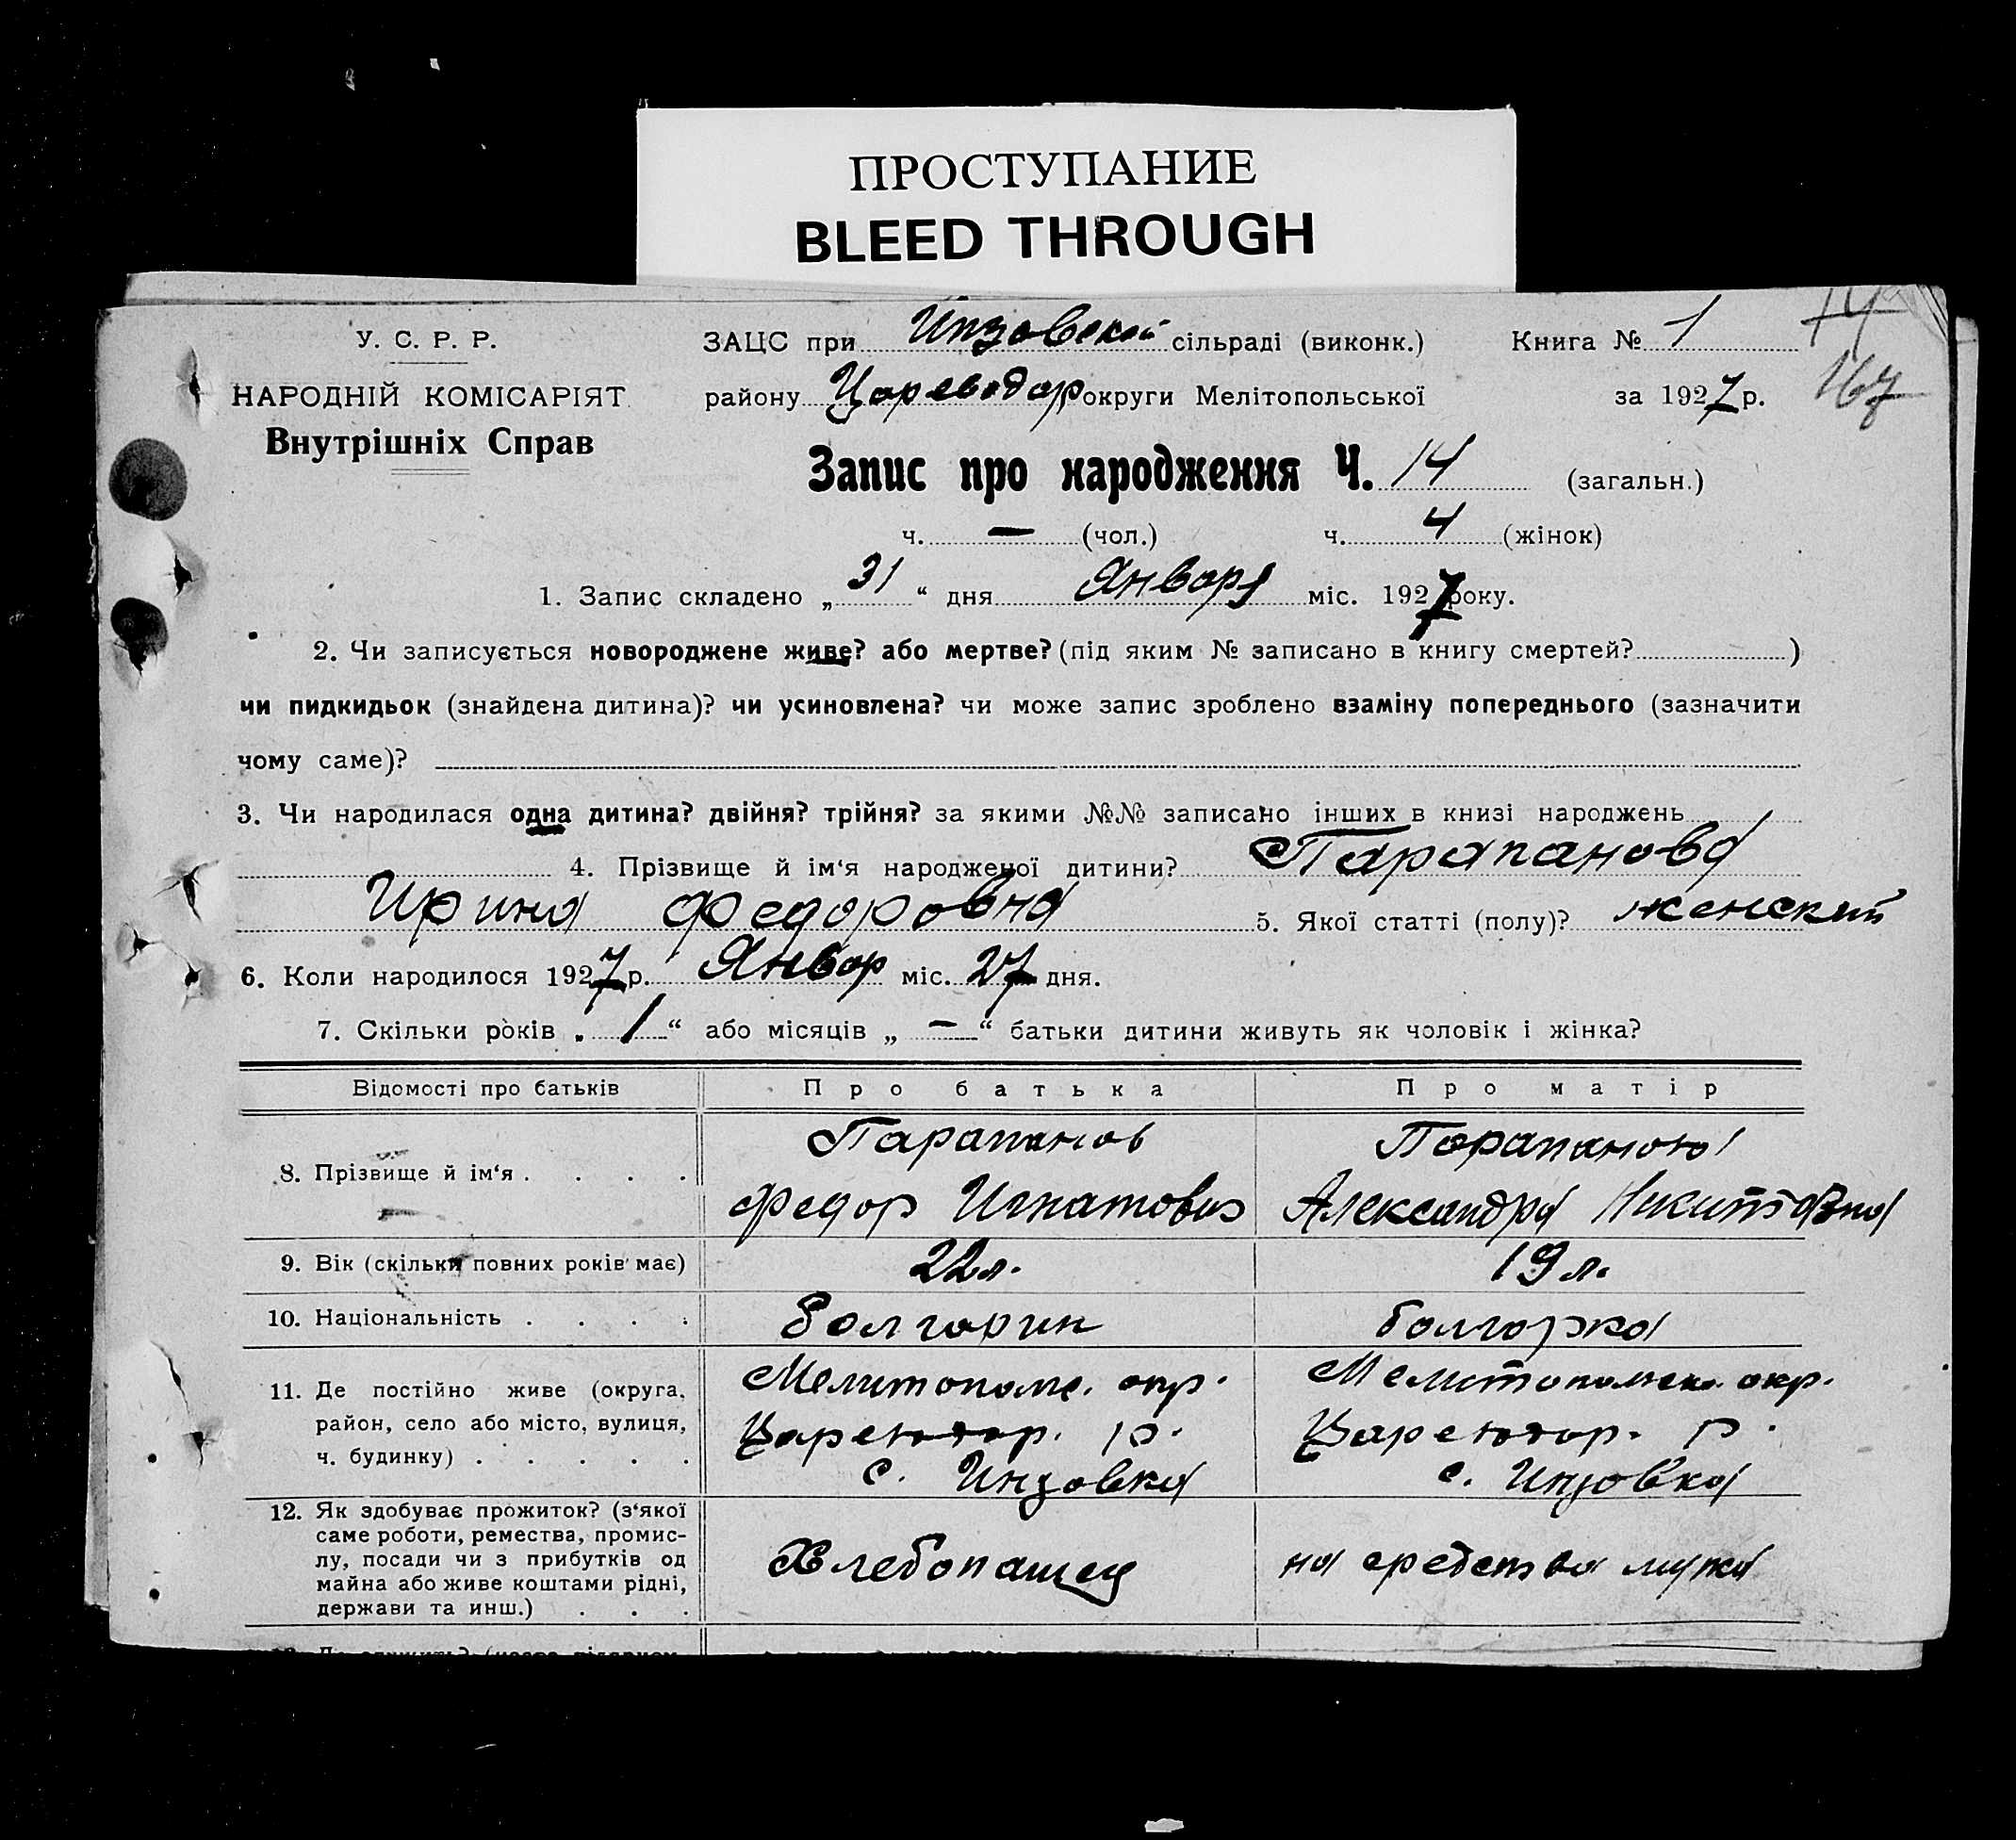 ПРОСТУПАНИЕ
BLEED THROUGH
У. С. Р. Р.
НАРОДНІЙ КОМІСАРІЯТ
Внутрішніх Справ
ЗАЦС при Инзовской сільраді (виконк.) Книга № 1
району Цареводар округи Мелітопольської за 1927 р.
14
167
Запис про народження Ч. 14 (загальн.)
ч. — (чол.) ч. 4 (жінок)
1. Запис складено „ 31 “ дня Января міс. 1927 року.
2. Чи записується новороджене живе? або мертве? (під яким № записано в книгу смертей? )
чи пидкидьок (знайдена дитина)? чи усиновлена? чи може запис зроблено взаміну попереднього (зазначити
чому саме)?
3. Чи народилася одна дитина? двійня? трійня? за якими №№ записано інших в книзі народжень
4. Прізвище й ім‘я народженої дитини? Парапанова
Ирина Федоровна 5. Якої статті (полу)? женский
6. Коли народилося 1927 р. Январ міс. 27 дня.
7. Скільки років „ 1 “ або місяців „ — “ батьки дитини живуть як чоловік і жінка?
Відомості про батьків Про батька Про матір
8. Прізвище й ім‘я . . . .
Парапанов
Федор Игнатович
Парапанова
Александра Никитовна
9. Вік (скільки повних років має) 22 л. 19 л.
10. Національність . . . . болгарин болгарка
11. Де постійно живе (округа,
район, село або місто, вулиця,
ч. будинку) . . . . .
Мелитопольс. окр.
Цареводар. р.
с. Инзовка
Мелитопольск. окр.
Цареводар. р.
с. Инзовка
12. Як здобуває прожиток? (з‘якої
саме роботи, ремества, промис-
лу, посади чи з прибутків од
майна або живе коштами рідні,
держави та инш.) . . .
Хлебопашец
на средства мужа